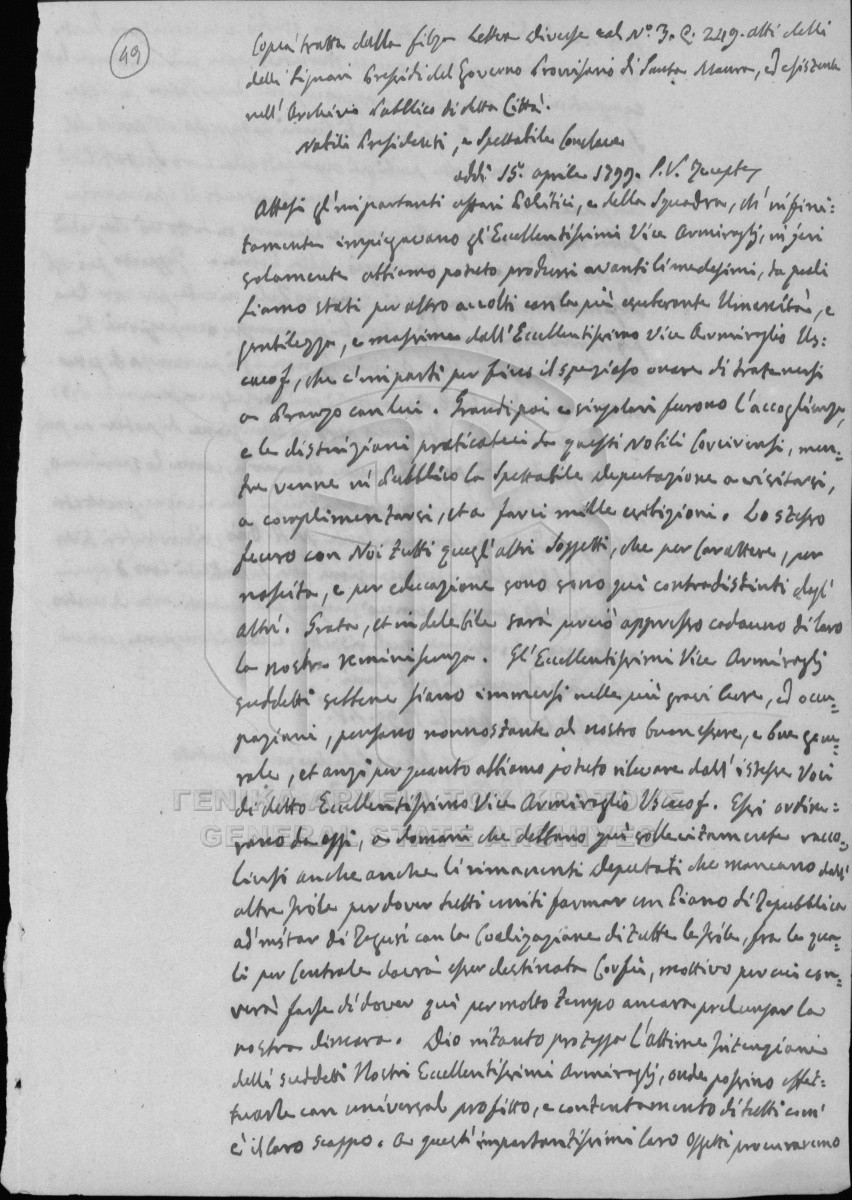 49
Copia tratta dalla filza Lettere Diverse al Nº 3. C. 249. atti delli
delli Signori Presidi del Governo Provisorio di Santa Maura, ed esistente
nell' Archivio Pubblico di detta Città.
Nobili Presidenti, e Spettabile Conclave
addi 15. aprile 1799. S. V. Recepte
Attesi gl'importanti affari Politici, e della Squadra, ch' infini=
tamente impiegavano gl'Eccellentissimi Vice Armiraglj, in jeri
solamente abbiamo potuto produrci avanti li medesimi, da quali
siamo stati per altro accolti con la più esuberante Umanità, e
gentilezza, e massime dall'Eccellentissimo Vice Armiraglio Us=
cacof, che c'impartì per fino il spezioso onore di trattenersi
a Pranzo con lui. Grandi poi e singolari furono l'accoglienze,
e le distinzioni praticateci da questi Nobili Corcirensi, men=
tre venne in Pubblico la Spettabile deputazione a visitarci,
a complimentarci, et a farci mille esibizioni. Lo stesso
fecero con Noi tutti quegl'altri Soggetti, che per Carattere, per
nascita, e per educazione sono sono qui contradistinti degl'
altri. Grata, et indelebile sarà perciò appresso cadauno di loro
la nostra reminisenza. Gl'Eccellentissimi Vice Armiraglj
suddetti sebbene siano immersi nelle più gravi Cure, ed occu=
pazioni, pensano nonnostante al nostro buon essere, e ben gene=
rale, et anzi per quanto abbiamo potuto rilevare dall'istesse Voci
di detto Eccellentissimo Vice Armiraglio Uscacof. Essi ordine=
ranno da essi, a domani che debbano più sollecitamente racco=
liersi anche anche li rimanenti Deputati che mancano dall'
altre Isole per dover tutti uniti formar un Piano di Repubblica
ad instar di Ragusi con la Coalizazione di tutte le Isole, fra le qua=
li per Centrale dovrà esser destinata Corfù, mottivo per cui con=
verrà forse di dover qui per molto tempo ancora prolungar la
nostra dimora. Dio intanto protegga l'ottime Intenzioni
delli suddetti Nostri Eccellentissimi Armiraglj, onde possino effet=
tuarle con universal profitto, e contentamento di tutti com'
è il loro scoppo. A questi importantissimi loro oggetti procuraremo
ΓΕΝΙΚΑ ΑΡΧΕΙΑ ΤΟΥ ΚΡΑΤΟΥΣ
GENERAL STATE ARCHIVES